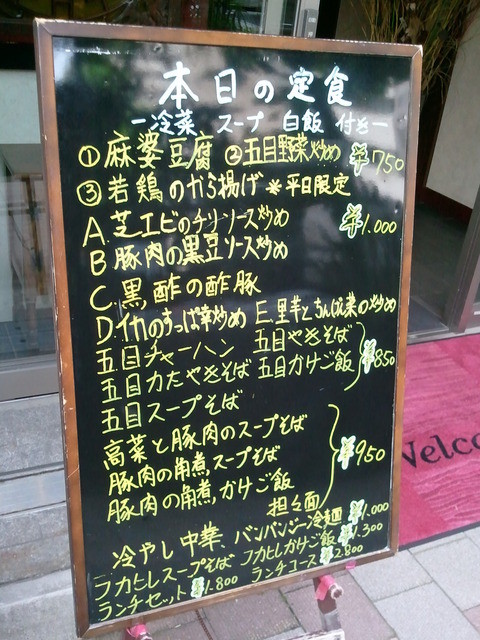 本日の定食
ー冷菜 スープ 白飯 付きー
①麻婆豆腐 ②五目野菜炒め ¥750
③若鶏のから揚げ ※平日限定
A.芝エビのチリソース炒め ¥1.000
B.豚肉の黒豆ソース炒め
C.黒酢の酢豚
Dイカのちっぱ葉炒め E.里芋とちんぱん菜の炒め
五目チャーハン 五目やきそば
五目カたやきそば 五目かけご飯 ¥850
五目スープそば
高菜と豚肉のスープそば
豚肉の角煮スープそば ¥950
豚肉の角煮かけご飯
担々麺
冷やし中華、バンバンジー冷麺 ¥1.000
フカヒレスープそば フカヒレかけご飯 ¥1.300
ランチセット ¥1.800 ランチコース ¥2.800
Welco